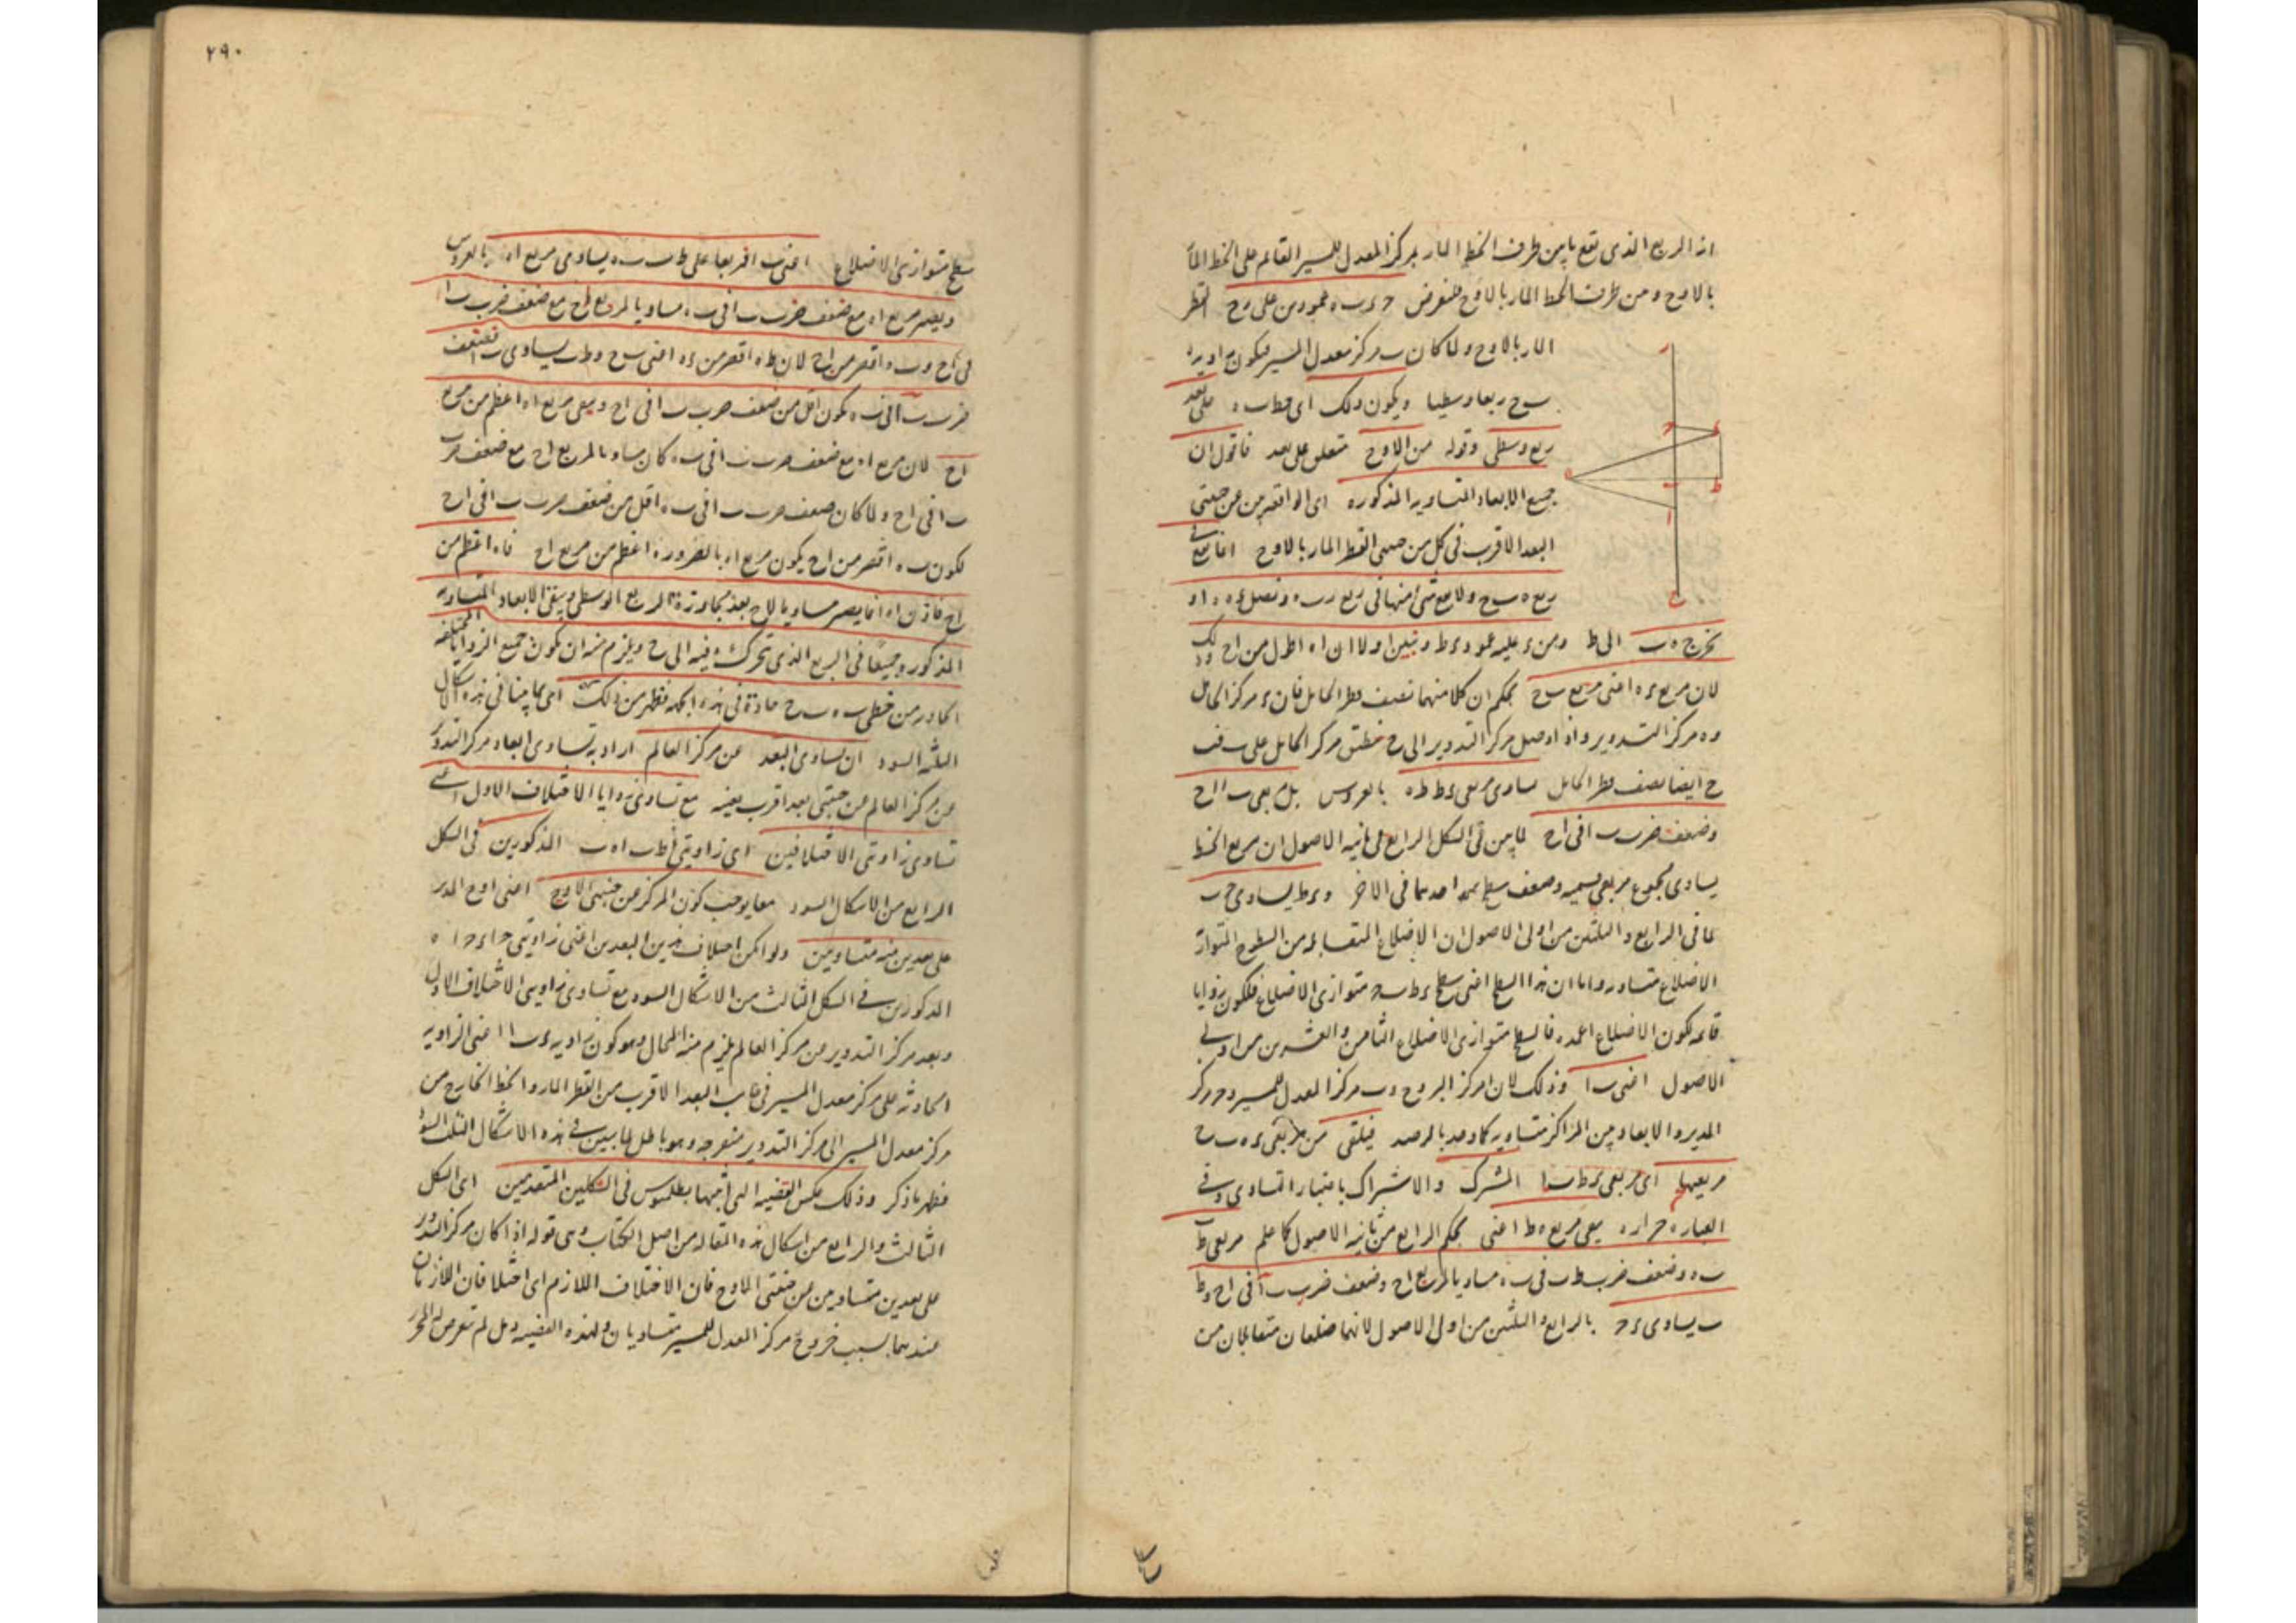 انه الربع الذي يقع ما بين طرف الخط المار بمركز المعدل للمسير القائم على الخط المار
بالاوج ومن طرف الخط المار بالاوج فلنفرض عمودين على القطر
المار بالاوج ولما كان ب مركز معدل المسير فيكون زاوية
ب ح ربعا وسطيا ويكون ذلك اى خط ب ه على بعد
ربع وسطى وقوله من الاوج متعلق على بعد فاقول ان
جميع الابعاد المتساوية المذكورة اى الواقعة من عن جنبتى
البعد الاقرب فى كل من جهتى القطر المار بالاوج انما تقع فى
ربع ه ب ح ولا يقع شئ منها فى ربع ر ب ه ونصل
نخرج ه ب الى ط ومن ء عليه عمود ء ط ونبين اولا ان ا ه اطول من ا ح وذلك
لان مربع ء ه اعنى مربع ب ح بحكم ان كلا منهما نصف قطر الحامل فان ء مركز الحامل
و ه مركز التدوير واذا وصل مركز التدوير الى ح ينطبق مركز الحامل على ب
ح ايضا نصف قطر الحامل مساوى مربعى ء ط ط ه بالعروس بل مربعى ب ا ا ح
وضعف ضرب ب ا فى ا ح لما بين فى الشكل الرابع من ثانية الاصول ان مربع الخط
يساوى مجموع مربعى قسميه وضعف سطح احدهما فى الاخر و ء ط يساوى ح ب
لما فى الرابع والثلثين من اولى الاصول ان الاضلاع المتقابلة من السطوح المتوازية
الاضلاع متساوية واما ان هذا السطح اعنى سطح ء ط ب ح متوازى الاضلاع فلكون زوايا
قائمة لكون الاضلاع اعمدة فالسطح متوازى الاضلاع الثامن والعشرين من اولى
الاصول اعنى ب ا وذلك لان ا مركز البروج و ب مركز المعدل للمسير و ح مركز
المدير والابعاد بين المراكز متساوية كما وجد بالرصد فيلقى من مربعى ء ه ب ح
مربعيهما اى مربعى ء ط ب ا المشترك والاشتراك باعتبار التساوى وفى
العبارة حزازة يبقى مربع ه ط اعنى بحكم الرابع من ثانية الاصول كما علم مربعى ط ب
ب ه وضعف ضرب ط ب فى ب ه مساويا لمربع ا ح وضعف ضرب ب ا فى ا ح و ط
ب يساوى ء ح بالرابع والثلثين من اولى الاصول لانهما ضلعان متقابلان من
٢٩٠
سطح متوازى الاضلاع اعنى ب ا يساوى مربع ا ه بالعروس
ويصير مربع ا ه مع ضعف ضرب ب ا فى ب ه مساويا لمربع ا ح مع ضعف ضرب ب ا
فى ا ح و ب ه اقصر من ب ح لان ط ه اقصر من ء ه اعنى ب ح و ط ب يساوى ب ا فضعف
ضرب ب ا فى ب ه يكون اقل من ضعف ضرب ب ا فى ا ح ويبقى مربع ا ه اعظم من مربع
ا ح لان مربع ا ه مع ضعف ضرب ب ا فى ب ه كان مساويا لمربع ا ح مع ضعف ضرب
ب ا فى ا ح ولما كان ضعف ضرب ب ا فى ب ه اقل من ضعف ضرب ب ا فى ا ح
لكون ب ه اقصر من ا ح يكون مربع ا ه بالضرورة اعظم من مربع ا ح فا ه اعظم من
ا ح فاذن ا ه انما يصير مساويا لا ح بعد مجاوزة ه الربع الوسطى ويبقى الابعاد المتساوية
المذكورة جميعا فى الربع الذى تتحرك ه فيه الى ح ويلزم منه ان يكون جميع الزوايا المختلفة
الحادثة من خطى ب ه ب ح حادة فى هذه الجهة فظهر من ذلك اى بما بينا فى هذه الاشكال
الثلثة السود ان تساوى البعد عن مركز العالم اراد به تساوى ابعاد مركز التدوير
عن مركز العالم عن جنبتى بعد اقرب بعينه مع تساوى زوايا الاختلاف الاول اعنى
تساوى زاويتى الاختلافين اى زاويتى ا ط ب ا ه ب المذكورين فى الشكل
الرابع من الاشكال السود معا يوجب كون المركز عن جنبتى الاوج اعنى اوج المدير
على بعدين منه متساويين ولو امكن اختلاف هذين البعدين اعنى زاويتى
المذكورين فى الشكل الثالث من الاشكال السود مع تساوى زاويتى الاختلاف الاول
وبعد مركز التدوير من مركز العالم يلزم منه المحال وهو كون زاوية ء ب ا اعنى الزاوية
الحادثة على مركز معدل المسير فى جانب البعد الاقرب من القطر المار والخط الخارج من
مركز معدل المسير الى مركز التدوير منفرجة وهو باطل لما بين فى هذه الاشكال الثلثة السود
فظهر ما ذكر وذلك عكس القضية التى اثبتها بطلميوس فى الشكلين المتقدمين اى الشكل
الثالث والرابع من اشكال هذه المقالة من اصل الكتاب وهى قوله اذا كان مركز التدوير
على بعدين متساويين عن جنبتى الاوج فان الاختلاف اللازم اى اختلافان اللازمان
عندهما بسبب خروج مركز المعدل للمسير متساويان ولهذه القضية هل لم تعرض له المحرر